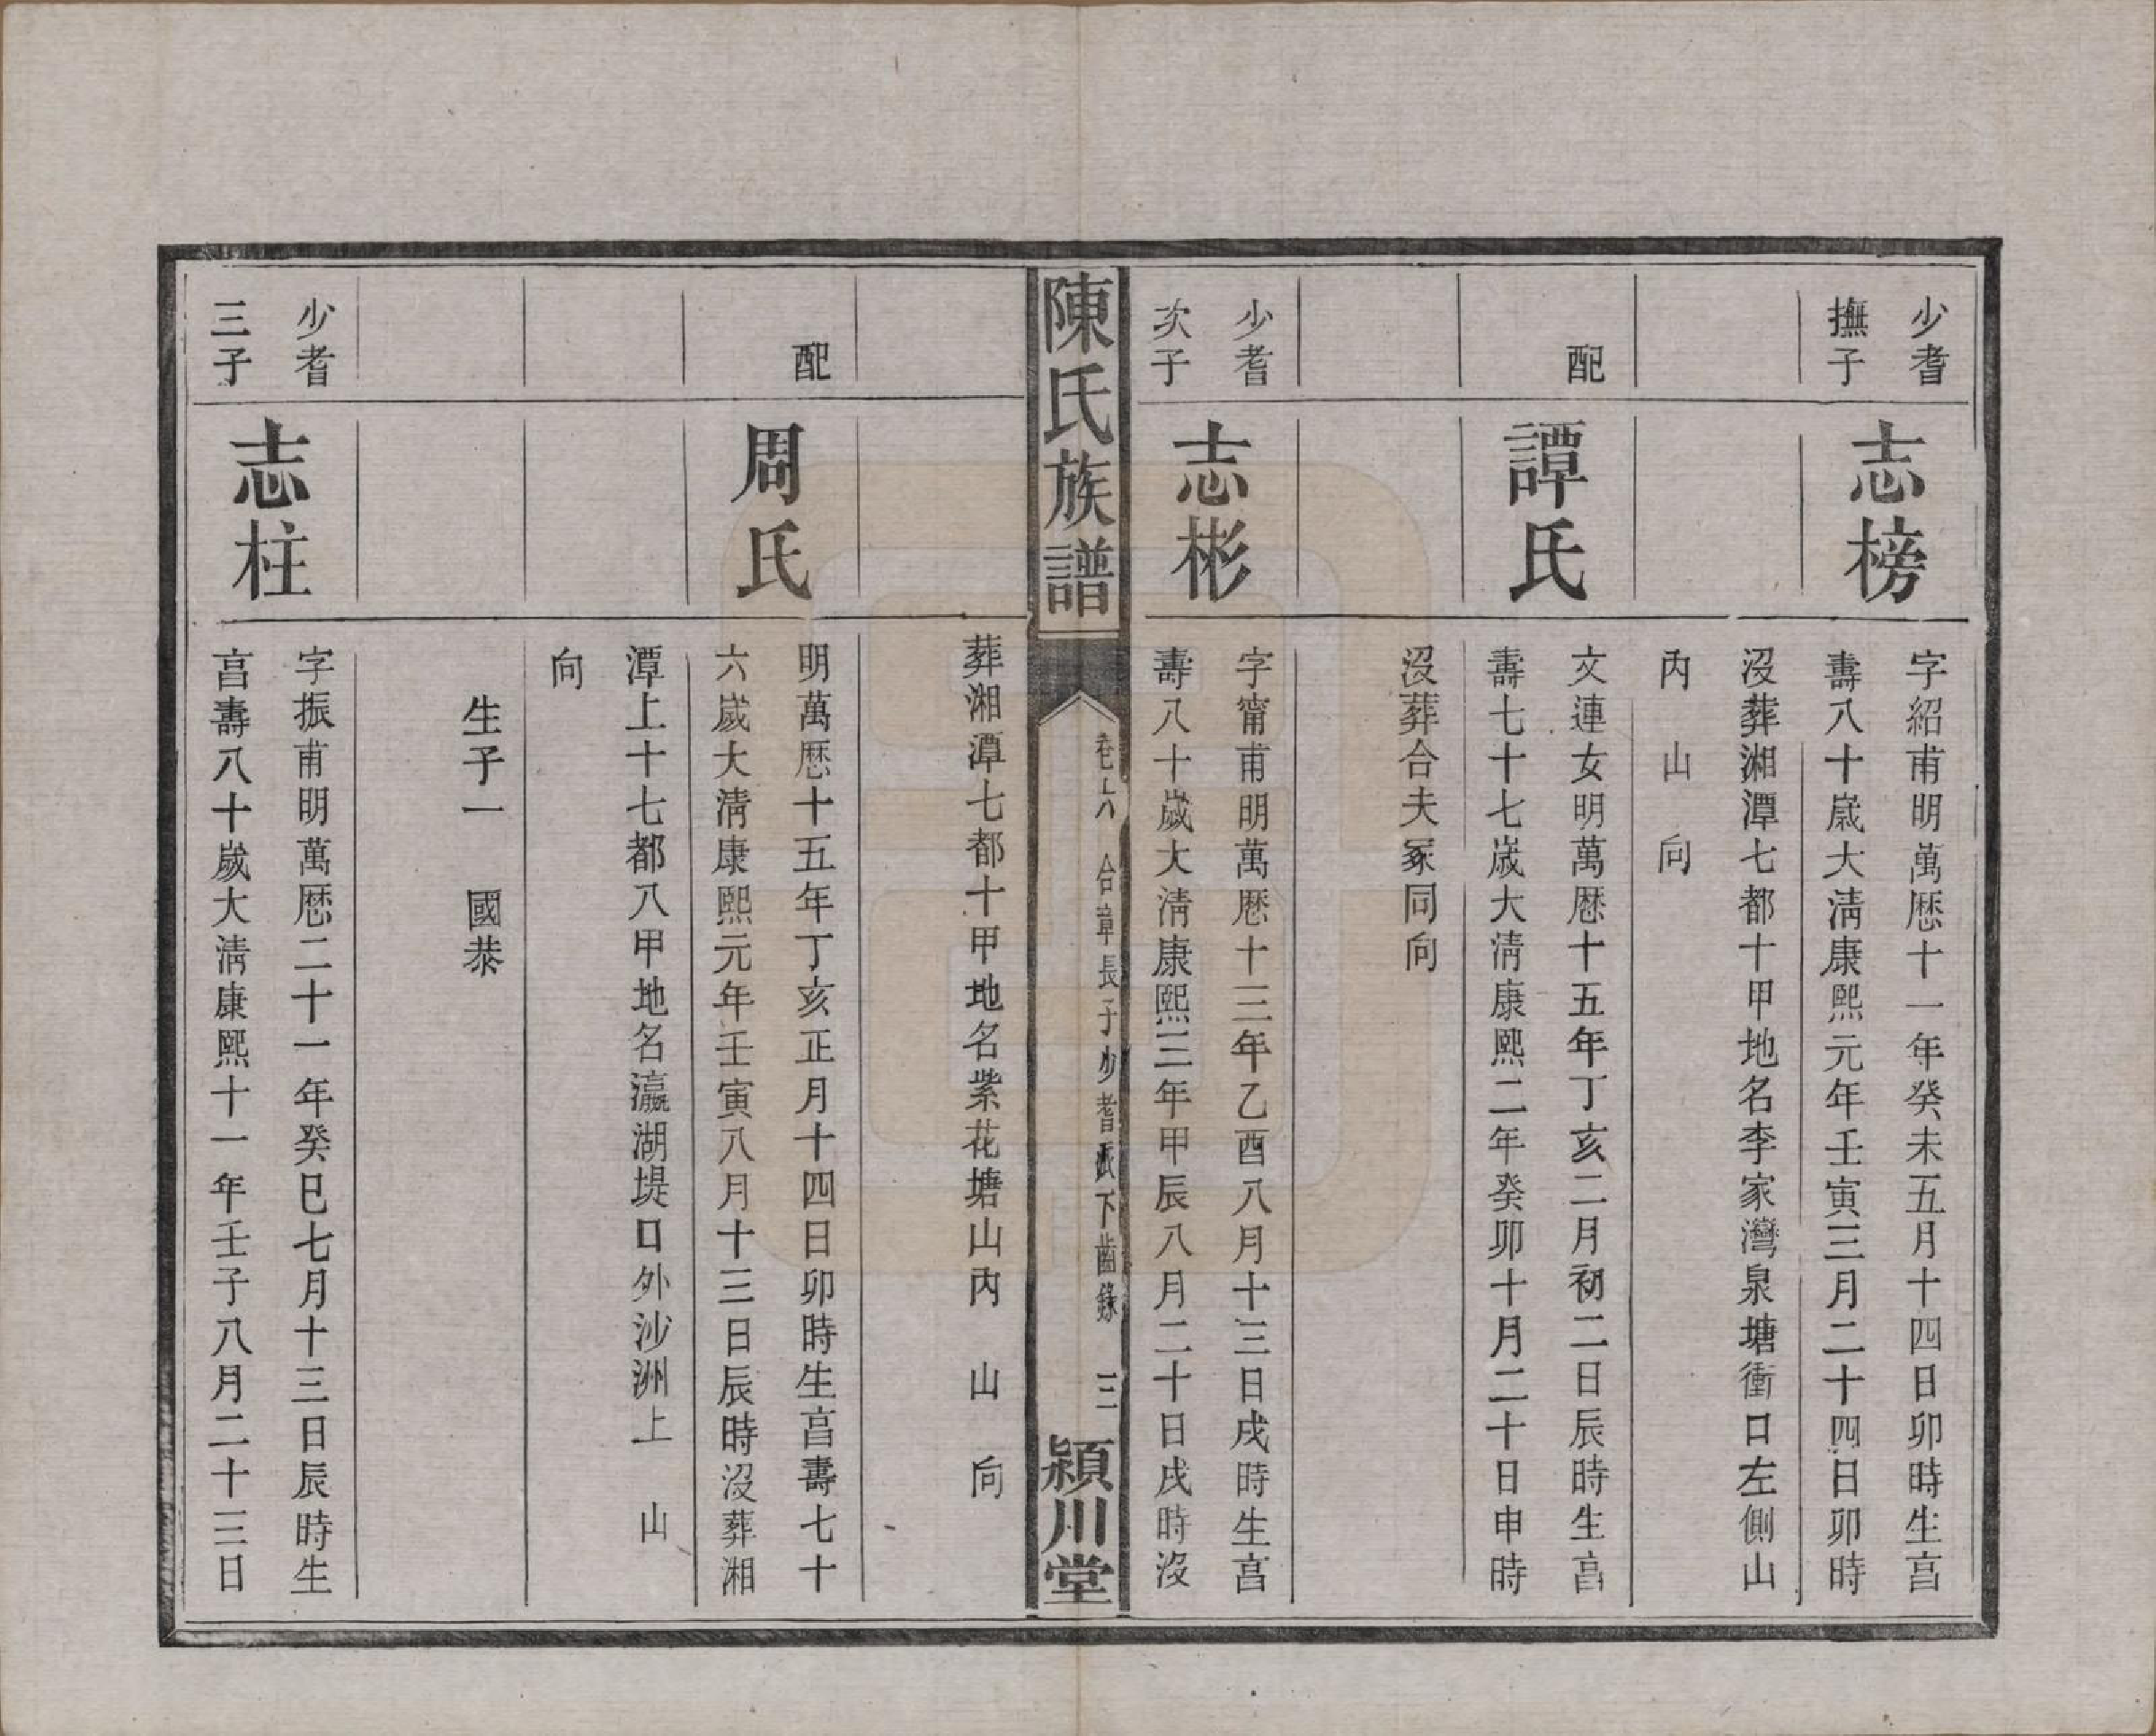 少耆
撫子
志榜
字紹甫明萬厯十一年癸未五月十四日卯時生亯
壽八十歳大淸康熙元年壬寅三月二十四日卯時
沒葬湘潭七都十甲地名李家灣泉塘衝口左側山
內　山　向
配
譚氏
文連女明萬厯十五年丁亥二月初二日辰時生亯
壽七十七歳大淸康熙二年癸卯十月二十日申時
沒葬合夫冢同向
少耆
次子
志彬
字甯甫明萬厯十三年乙酉八月十三日戌時生亯
壽八十歲大淸康熙三年甲辰八月二十日戌時沒
陳氏族譜
卷六　合章長子少耆派下齒錄　三
潁川堂
葬湘潭七都十甲地名紫花塘山內　山　向
配
周氏
明萬厯十五年丁亥正月十四日卯時生亯壽七十
六歲大淸康熙元年壬寅八月十三日辰時沒葬湘
潭上十七都八甲地名瀛湖堤口外沙洲上　山
向
生子一　國恭
少耆
三子
志柱
字振甫明萬厯二十一年癸巳七月十三日辰時生
亯壽八十歲大淸康熙十一年壬子八月二十三日